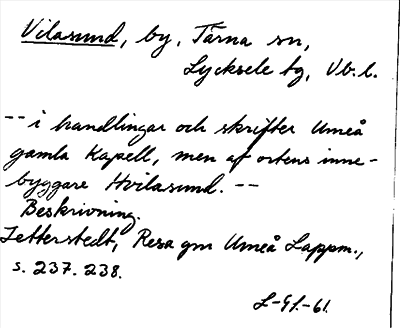 Vilasund, by, Tärna sn,
Lycksele tg, Vb. l.
-- i handlingar och skrifter Umeå
gamla Kapell, men af ortens inne-
byggare Hvilasund. --
Beskrivning.
Zetterstedt, Resa gm Umeå Lappm.,
s. 237. 238.